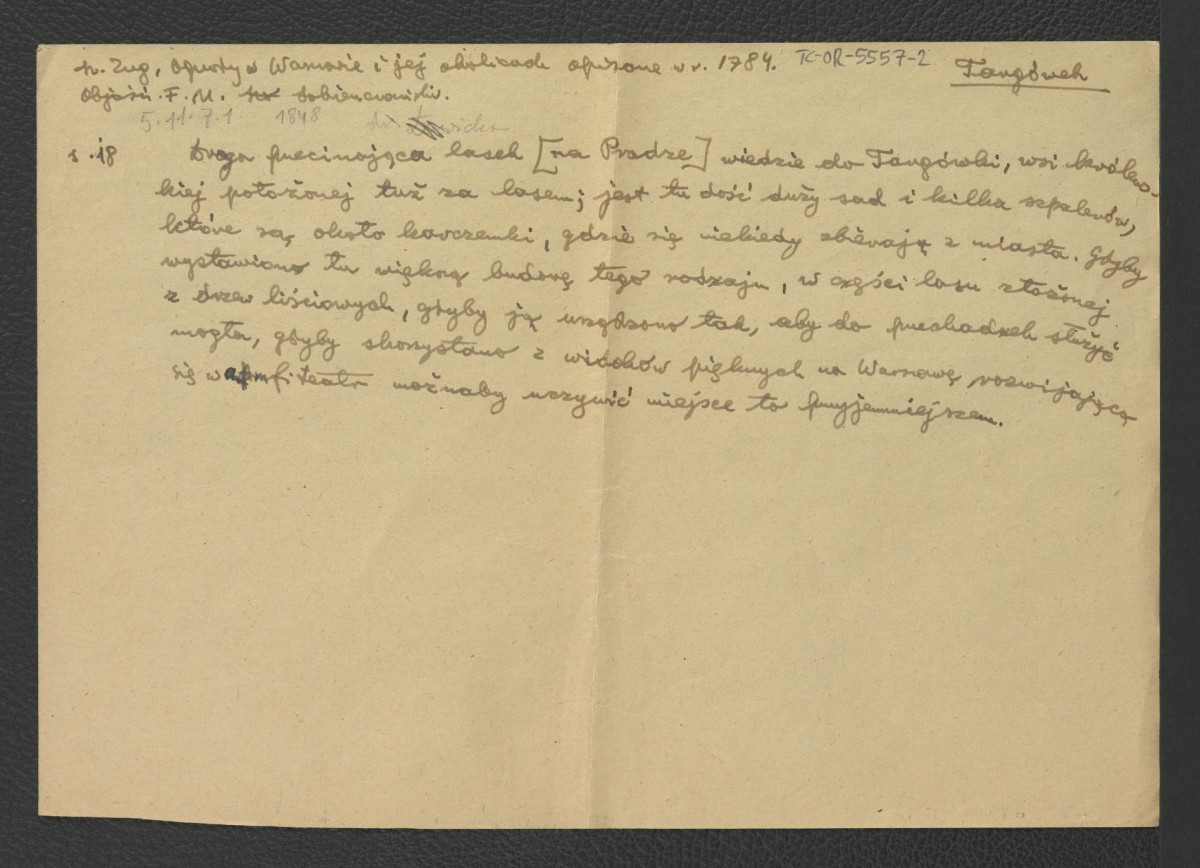 Sz. Zug, Ogrody w Warszawie i jej okolicach opisane w r. 1784. TC-OR-5557-2 Targówek
Objaśn. F. M. Sobieszczański.
5.11.7.1 1848
s. 18 Droga przecinająca lasek [na Pradze] wiedzie do Targówki, wsi królews-
kiej położonej tuż za lasem; jest tu dość duży sad i kilka szpalerów,
które są około karczemki, gdzie się niekiedy zbierają z miasta. Gdyby
wystawiono tu większą budowę tego rodzaju, w części lasu złożonej
z drzew liściowych, gdyby ją urządzono tak, aby do przechadzek służyć
mogła, gdyby skorzystano z widoków pięknych na Warszawę rozwijającą
się w amfiteatr możnaby uczynić miejsce to przyjemniejszem.